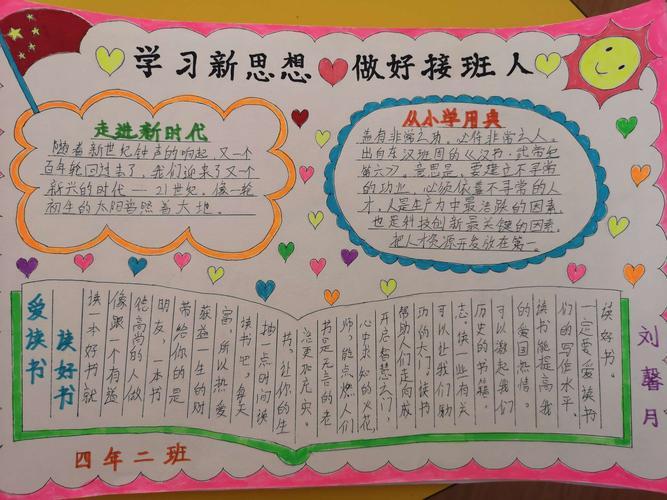 学习新思想 做好接班人
走进新时代
随着新世纪钟声的响起,又一个
百年轮回过去了,我们迎来了又一个
新兴的时代——21世纪,像一轮
初生的太阳普照着大地。
从小学用典
盖有非常之功,必待非常之人。
出自东汉班固的《汉书·武帝纪
第六》意思是,要建立不寻常
的功业,必须依靠不寻常的人
才,人是生产力中最活跃的因素,
也是科技创新最关键的因素,
把人才资源开发放在第一
爱读书
读好书
读一本好书就
像跟一个有益
德高尚的人做
朋友,一本书
带给你的是
获益一生的财
富。所以热爱
读书吧,每天
抽一点时间读
书,让你的生
活更加充实。
书是无言的老
师,能点燃人们
心中求知的火花,
开启智慧之门,
帮助人们走向成
功的大门。读书
可以让我们励
志。读一些有关
历史的书籍,
可以激起我们
的爱国热情。
读书能提高我
们的写作水平。
一定要爱读书
读好书。
刘馨月
四年二班